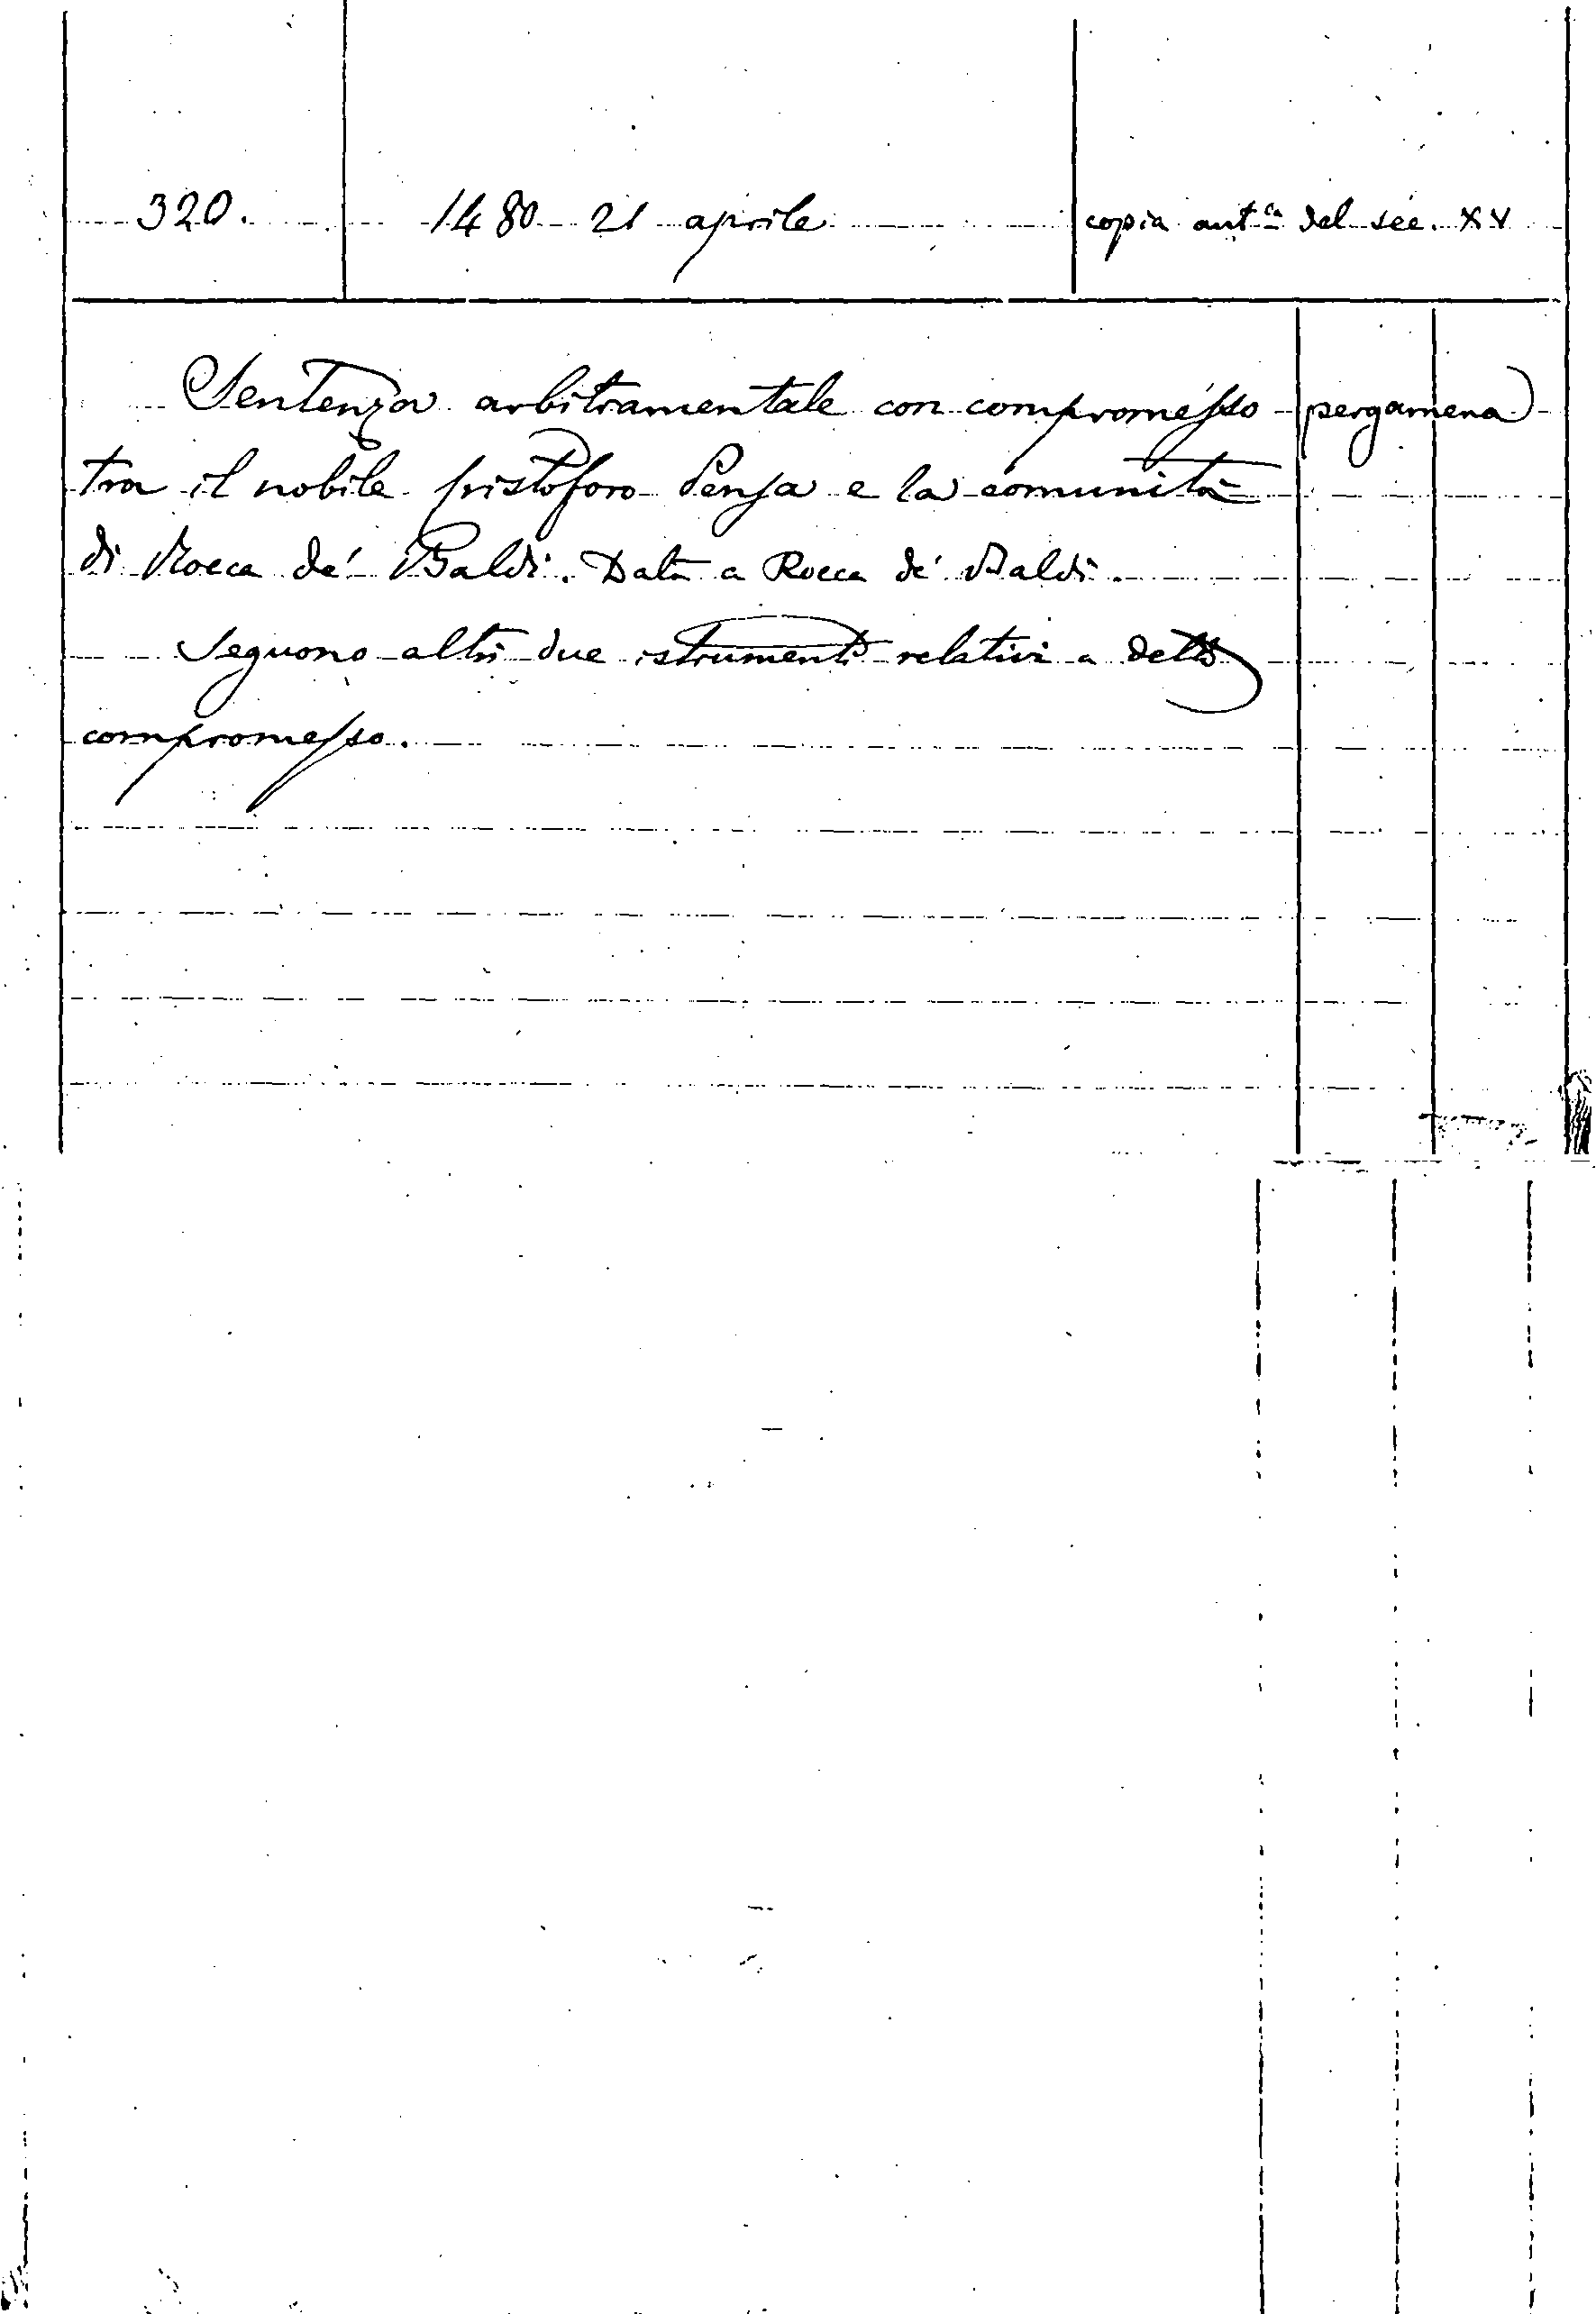 320. 1480 21 aprile copia aut.ca del sec. XV
Sentenza arbitramentale con compromesso pergamena
tra il nobile Cristoforo Pensa e la comunità
di Rocca de' Baldi. Data a Rocca de' Baldi.
Seguono altri due istrumenti relativi a detto
compromesso.